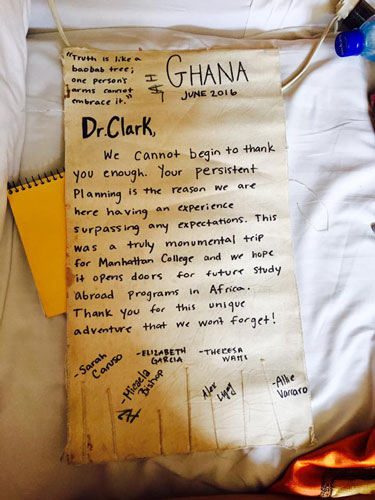 "Truth is like a
baobab tree;
one person's
arms cannot
embrace it."
GHANA
JUNE 2016
Dr.Clark,
We Cannot begin to thank
you enough. Your persistent
Planning is the reason we are
here having an experience
surpassing any expectations. This
was a truly monumental trip
for Manhattan College and we hope
it opens doors for future study
abroad programs in Africa.
Thank you for this unique
adventure that we won't forget!
-Sarah
Caruso
-Micaela
Bishop
-ELIZABETH
GARCIA
-THERESA
Alex
-Allie
Varraro